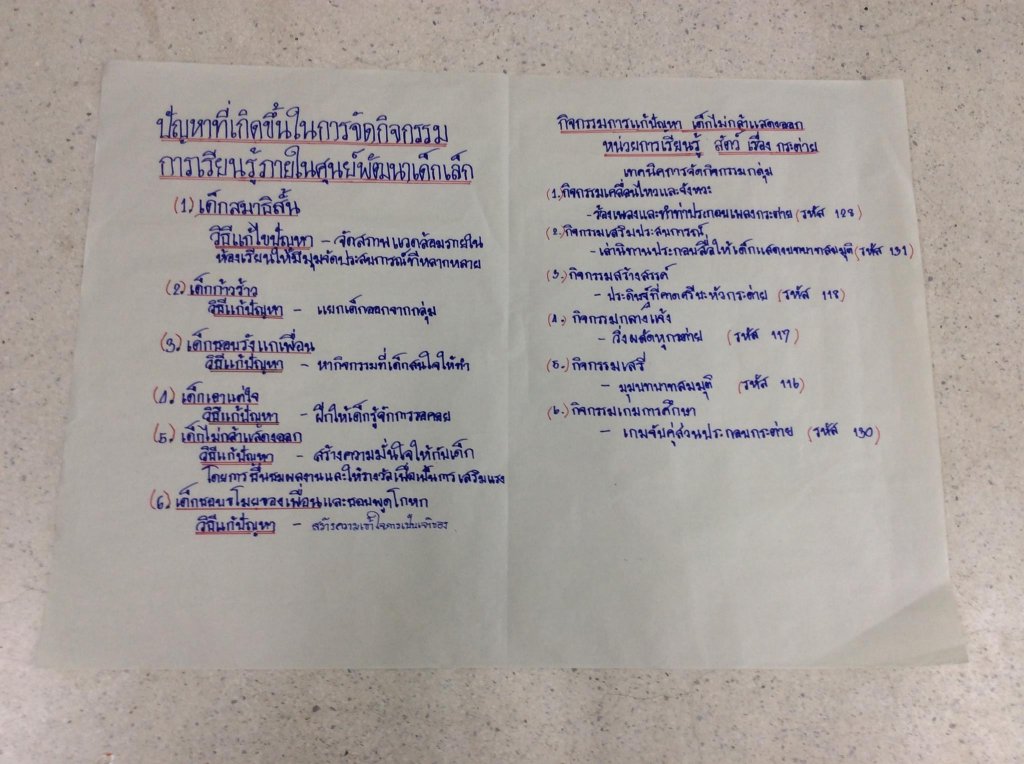 ปัญหาที่เกิดขึ้นในการจัดกิจกรรม
การเรียนรู้ภายในศูนย์พัฒนาเด็กเล็ก
(1) เด็กสมาธิสั้น
วิธีแก้ไขปัญหา – จัดสภาพแวดล้อมภายใน
ห้องเรียนให้มีมุมจัดประสบการณ์ที่หลากหลาย
(2) เด็กก้าวร้าว
วิธีแก้ปัญหา – แยกเด็กออกจากกลุ่ม
(3) เด็กชอบรังแกเพื่อน
วิธีแก้ปัญหา – หากิจกรรมที่เด็กสนใจให้ทำ
(4) เด็กเอาแต่ใจ
วิธีแก้ปัญหา – ฝึกให้เด็กรู้จักการรอคอย
(5) เด็กไม่กล้าแสดงออก
วิธีแก้ปัญหา – สร้างความมั่นใจให้กับเด็ก
โดยการชื่นชมผลงานและให้รางวัลเพื่อเป็นการเสริมแรง
(6) เด็กชอบขโมยของเพื่อนและชอบพูดโกหก
วิธีแก้ปัญหา – สร้างความเข้าใจการเป็นเจ้าของ
กิจกรรมการแก้ปัญหา เด็กไม่กล้าแสดงออก
หน่วยการเรียนรู้ สัตว์ เรื่อง กระต่าย
เทคนิคการจัดกิจกรรมกลุ่ม
(1.) กิจกรรมเคลื่อนไหวและจังหวะ
- ร้องเพลงและทำท่าประกอบเพลงกระต่าย (รหัส 128)
(2.) กิจกรรมเสริมประสบการณ์
- เล่านิทานประกอบสื่อให้เด็กแสดงบทบาทสมมุติ (รหัส 131)
(3.) กิจกรรมสร้างสรรค์
- ประดิษฐ์ที่คาดศรีษะหัวกระต่าย (รหัส 118)
(4.) กิจกรรมกลางแจ้ง
- วิ่งผลัดหูกระต่าย (รหัส 117)
(5.) กิจกรรมเสรี
- มุมบทบาทสมมุติ (รหัส 116)
(6.) กิจกรรมเกมการศึกษา
- เกมจับคู่ส่วนประกอบกระต่าย (รหัส 130)